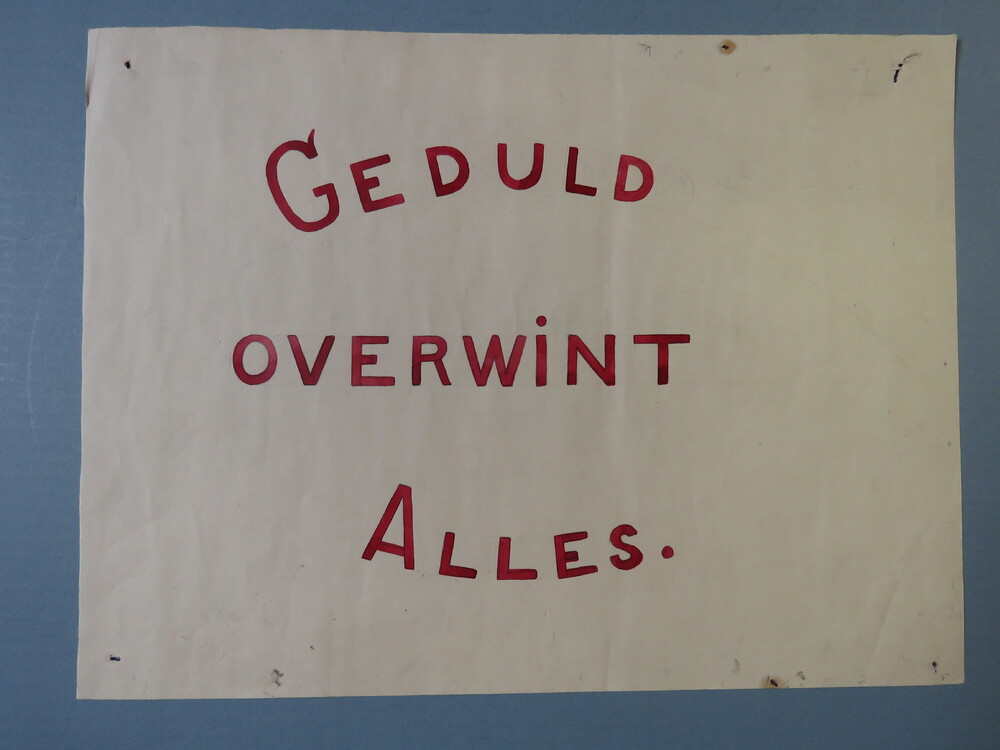 GEDULD
OVERWiNT
ALLES.